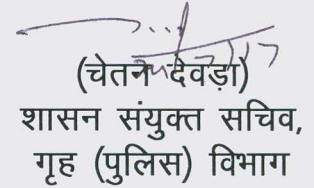 (चेतन देवड़ा)
शासन संयुक्त सचिव,
गृह (पुलिस) विभाग